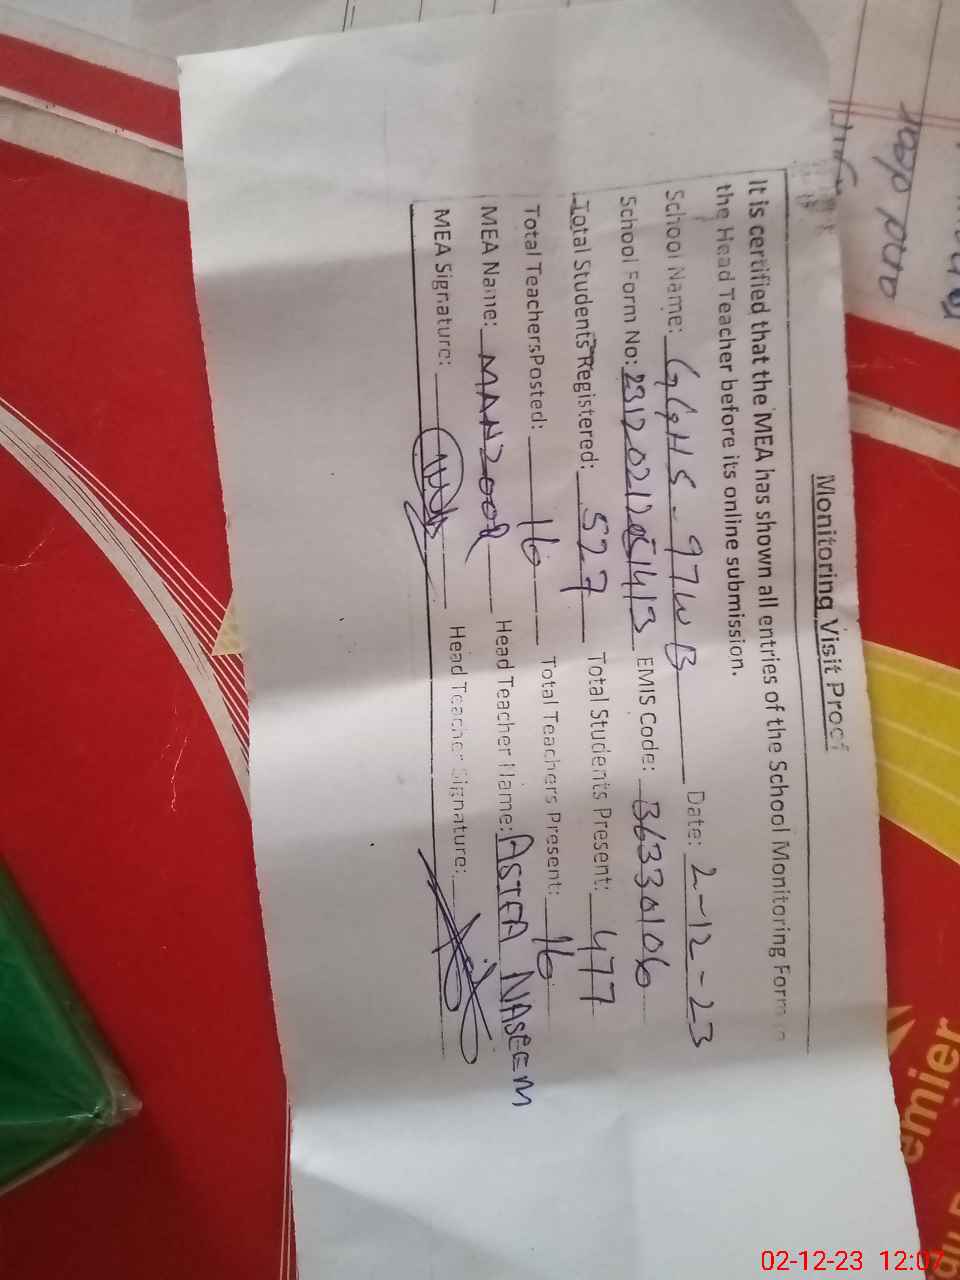 Monitoring Visit Proof
It is certified that the MEA has shown all entries of the School Monitoring Form to
the Head Teacher before its online submission.
School Name: GGHS-97WB Date: 2-12-23
School Form No: EMIS Code: 36330106
Total Students Registered: 527 Total Students Present: 477
Total TeachersPosted: 16 Total Teachers Present: 16
MEA Name: MANZOOR Head Teacher Name: ASIFA NASEEM
MEA Signature: Head Teacher Signature:
emier
02-12-23 12:07